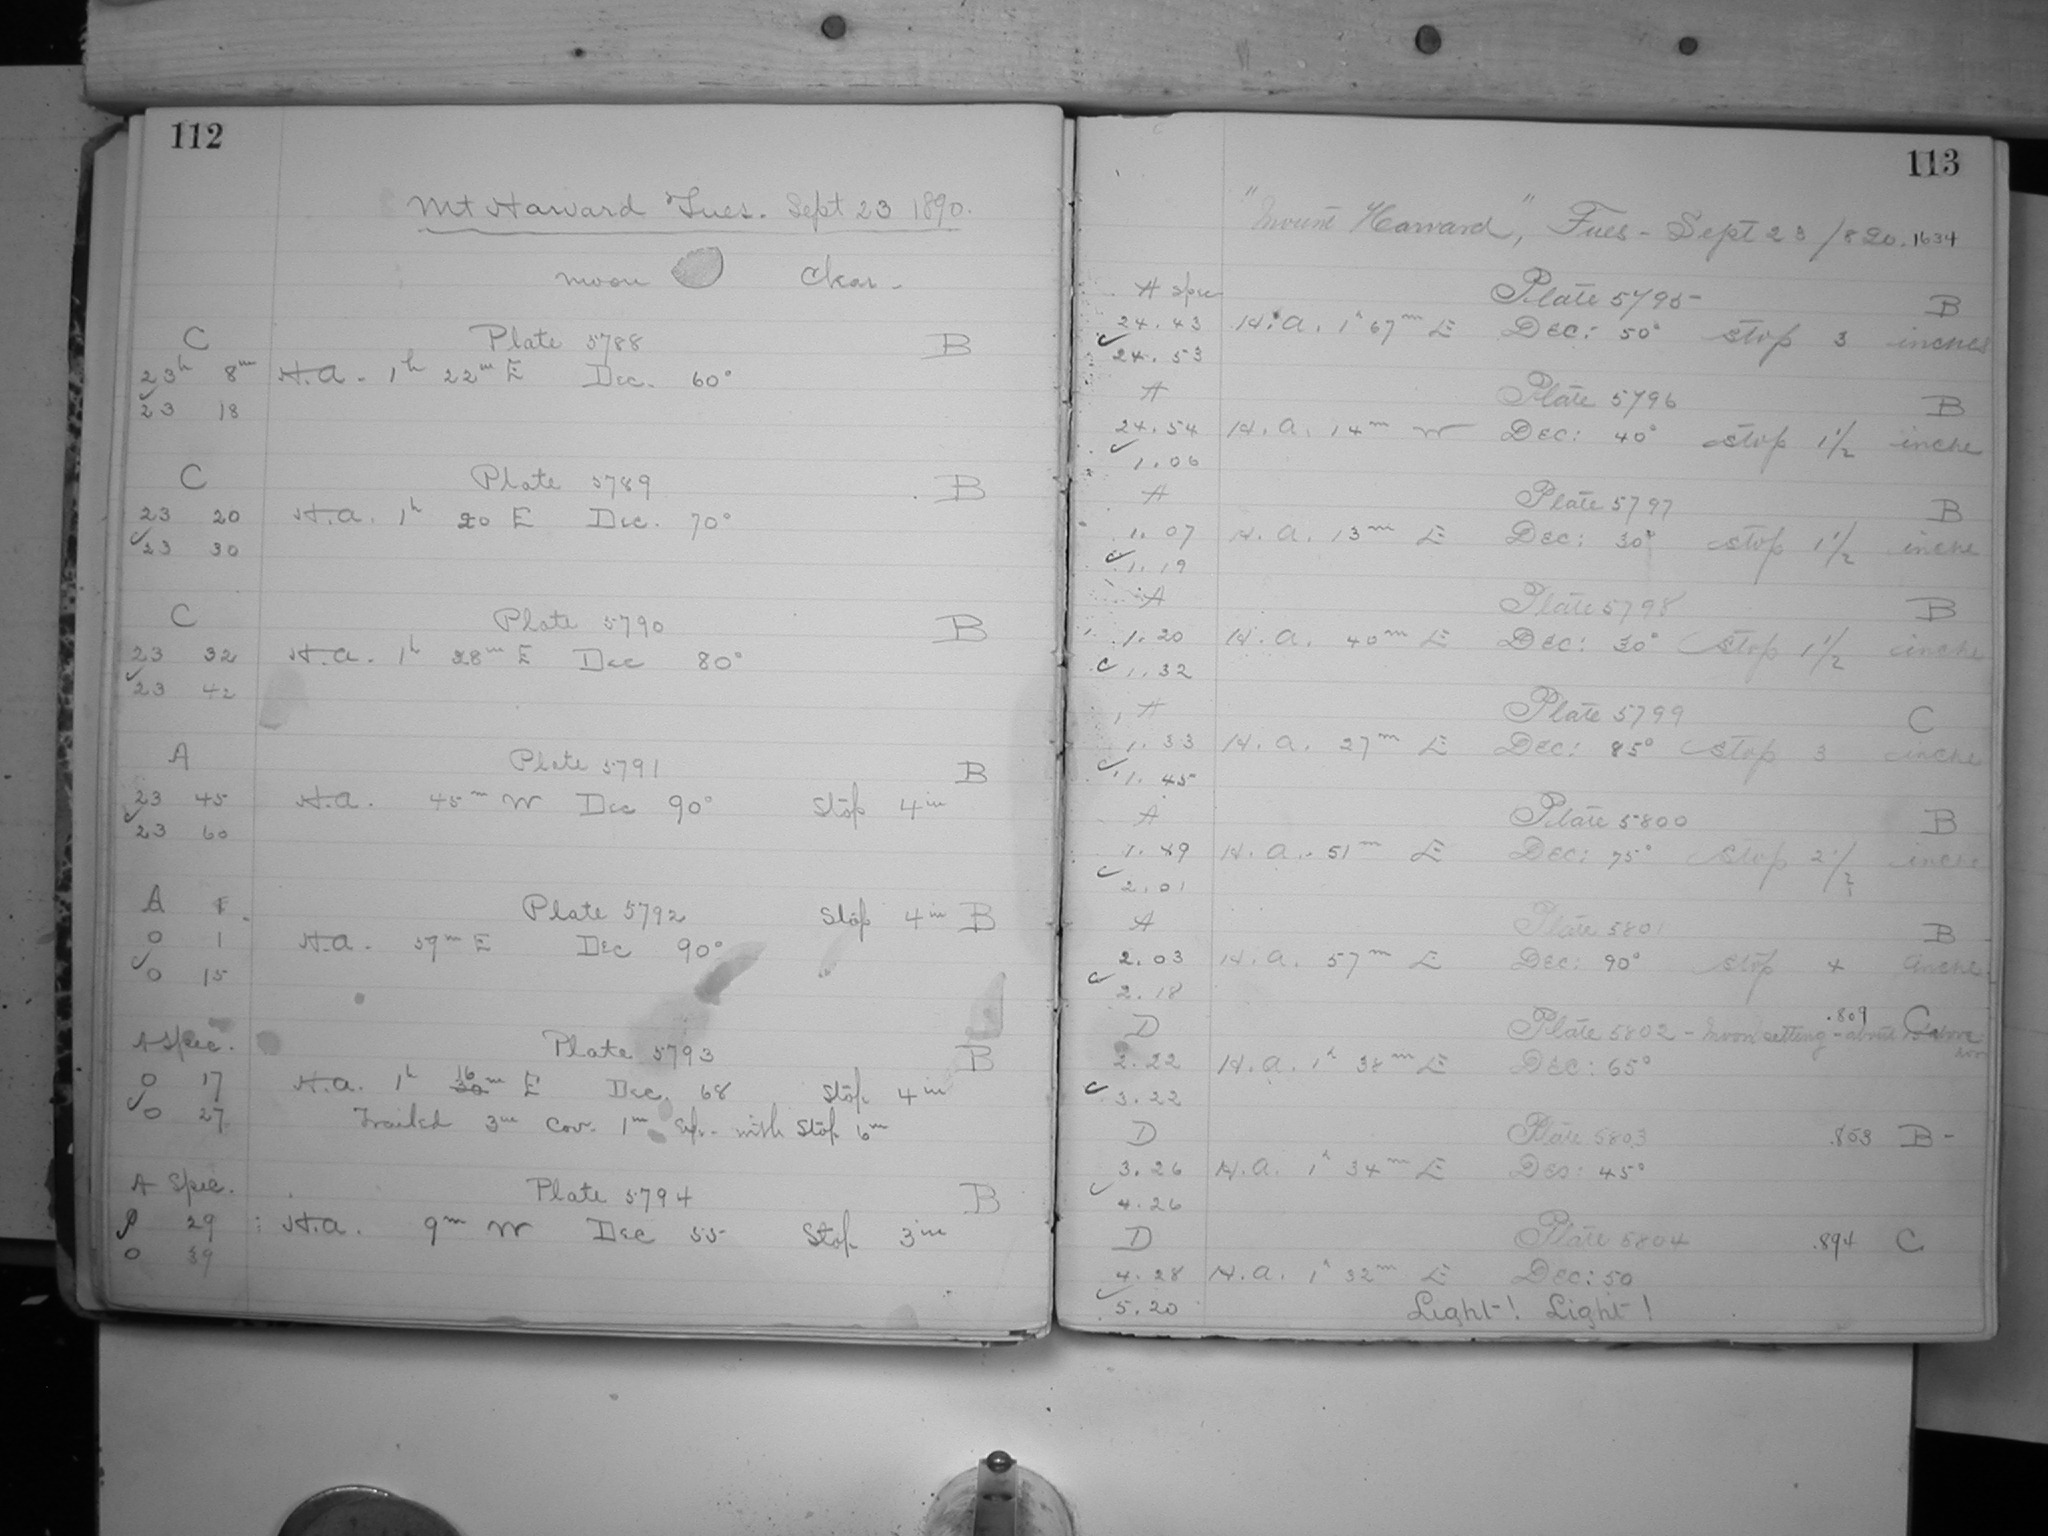 112
Mt Harvard Tues. Sept 23 1890.
moon Clear -
C Plate 5788 B
23h 8m H.A. - 1h 22m E Dec. 60°
23 18
C Plate 5789 B
23 20 H.A. 1h 20 E Dec. 70°
23 30
C Plate 5790 B
23 32 H.A. - 1h 28m E Dec 80°
23 42
A Plate 5791 B
23 45 H.A. 45m W Dec 90° Stop 4in
23 60
A Plate 5792 Stop 4in B
0 1 H.A. 59m E Dec 90°
0 15
A Spec. Plate 5793 B
0 17 H.A. 1h 16m E Dec. 68 Stop 4in
0 27 Trailed 3m Cov. 1m Exp. with Stop 6in
A Spec. Plate 5794 B
0 29 H.A. 9m W Dec 55 Stop 3in
0 39
113
"Mount Harvard", Tues - Sept 23 /890. 1634
A Spec Plate 5795 B
24.43 H.A. 1h 67m E Dec: 50° Stop 3 inches
24.53
A Plate 5796 B
24.54 H.A. 14m W Dec: 40° Stop 1 1/2 inche
1.06
A Plate 5797 B
1.07 H.A. 13m E Dec: 30° Stop 1 1/2 inche
1.19
A Plate 5798 B
1.20 H.A. 40m E Dec: 30° Stop 1 1/2 inche
1.32
A Plate 5799 C
1.33 H.A. 27m E Dec: 85° Stop 3 inche
1.45
A Plate 5800 B
1.49 H.A. 51m E Dec: 75° Stop 2 1/2 inche
2.01
A Plate 5801 B
2.03 H.A. 57m E Dec: 90° Stop 4 inche
2.18
D Plate 5802 - Moon setting - about .809 C
2.22 H.A. 1h 38m E Dec: 65°
3.22
D Plate 5803 .853 B -
3.26 H.A. 1h 34m E Dec: 45°
4.26
D Plate 5804 .894 C
4.28 H.A. 1h 32m E Dec: 50
5.20 Light! Light!